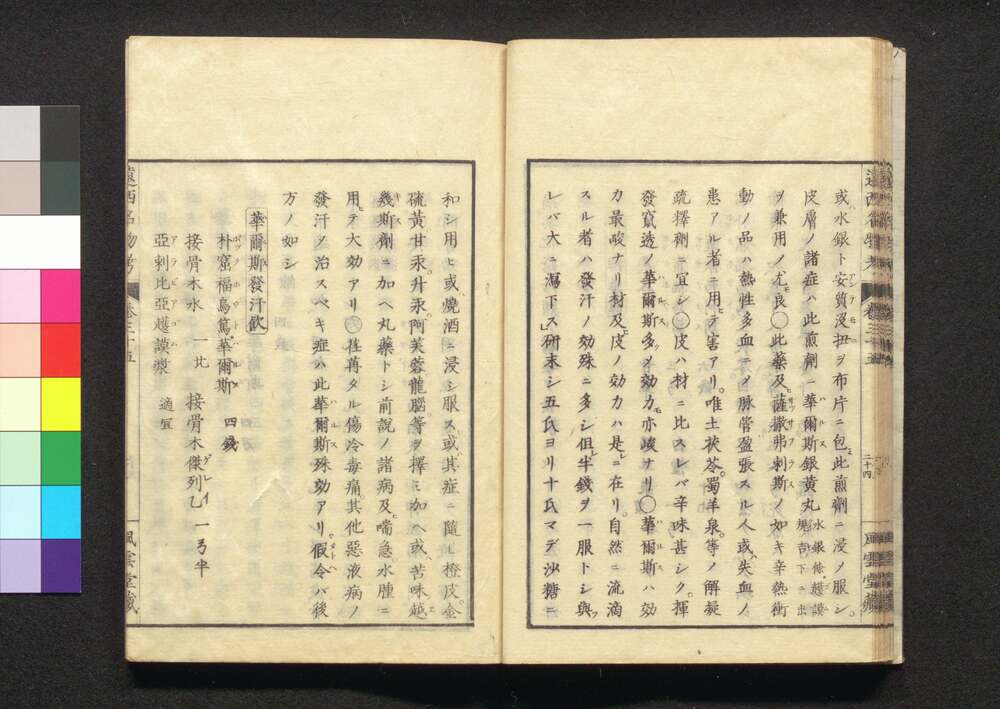 或水銀ト安質没扭ヲ布片ニ包此煎劑ニ浸メ服シ。
皮膚ノ諸症ハ此煎劑ニ華爾斯銀黄丸
ヲ兼用ノ尤良〇此薬及薩撒弗剌斯ノ如キ辛熱衝
動ノ品ハ熱性多血ニメ脉管盈張スル人或失血ノ
患アル者ニ用テ害アリ。唯土茯苓。蜀羊泉。等ノ解凝
疏釋劑ニ宜シ〇皮ハ材ニ比スレバ辛味甚シク。揮
發竄透ノ華爾斯多メ効力亦峻ナリ〇華爾斯ハ効
力最峻ナリ材及皮ノ効力ハ是ニ在リ。自然ニ流滴
スル者ハ發汗ノ効殊ニ多シ但半錢ヲ一服トシ與
レバ大ニ瀉下ス」研末シ五氏ヨリ十氏マデ沙糖ニ
遠西名物考
卷三十五
二十四
風雲堂藏
和シ用ヒ或燒酒ニ浸シ服ス或其症ニ隨ヒ橙皮。金
硫黄甘汞。升汞。阿芙蓉龍腦等ヲ擇ミ加ヘ或苦味越
幾斯劑ニ加ヘ丸藥トシ前説ノ諸病及喘急。水腫ニ
用テ大効アリ〇荏苒タル傷冷毒痛其他惡液病ノ
發汗ノ治スベキ症ハ此華爾斯殊効アリ。假令バ後
方ノ如シ
華爾斯發汗飮
朴窟福烏篤華爾斯 四錢
接骨木水 一比 接骨木傑列乙 一弓半
亞剌比亞護謨漿 適宜
遠西名物考
卷三十五
風雲堂藏